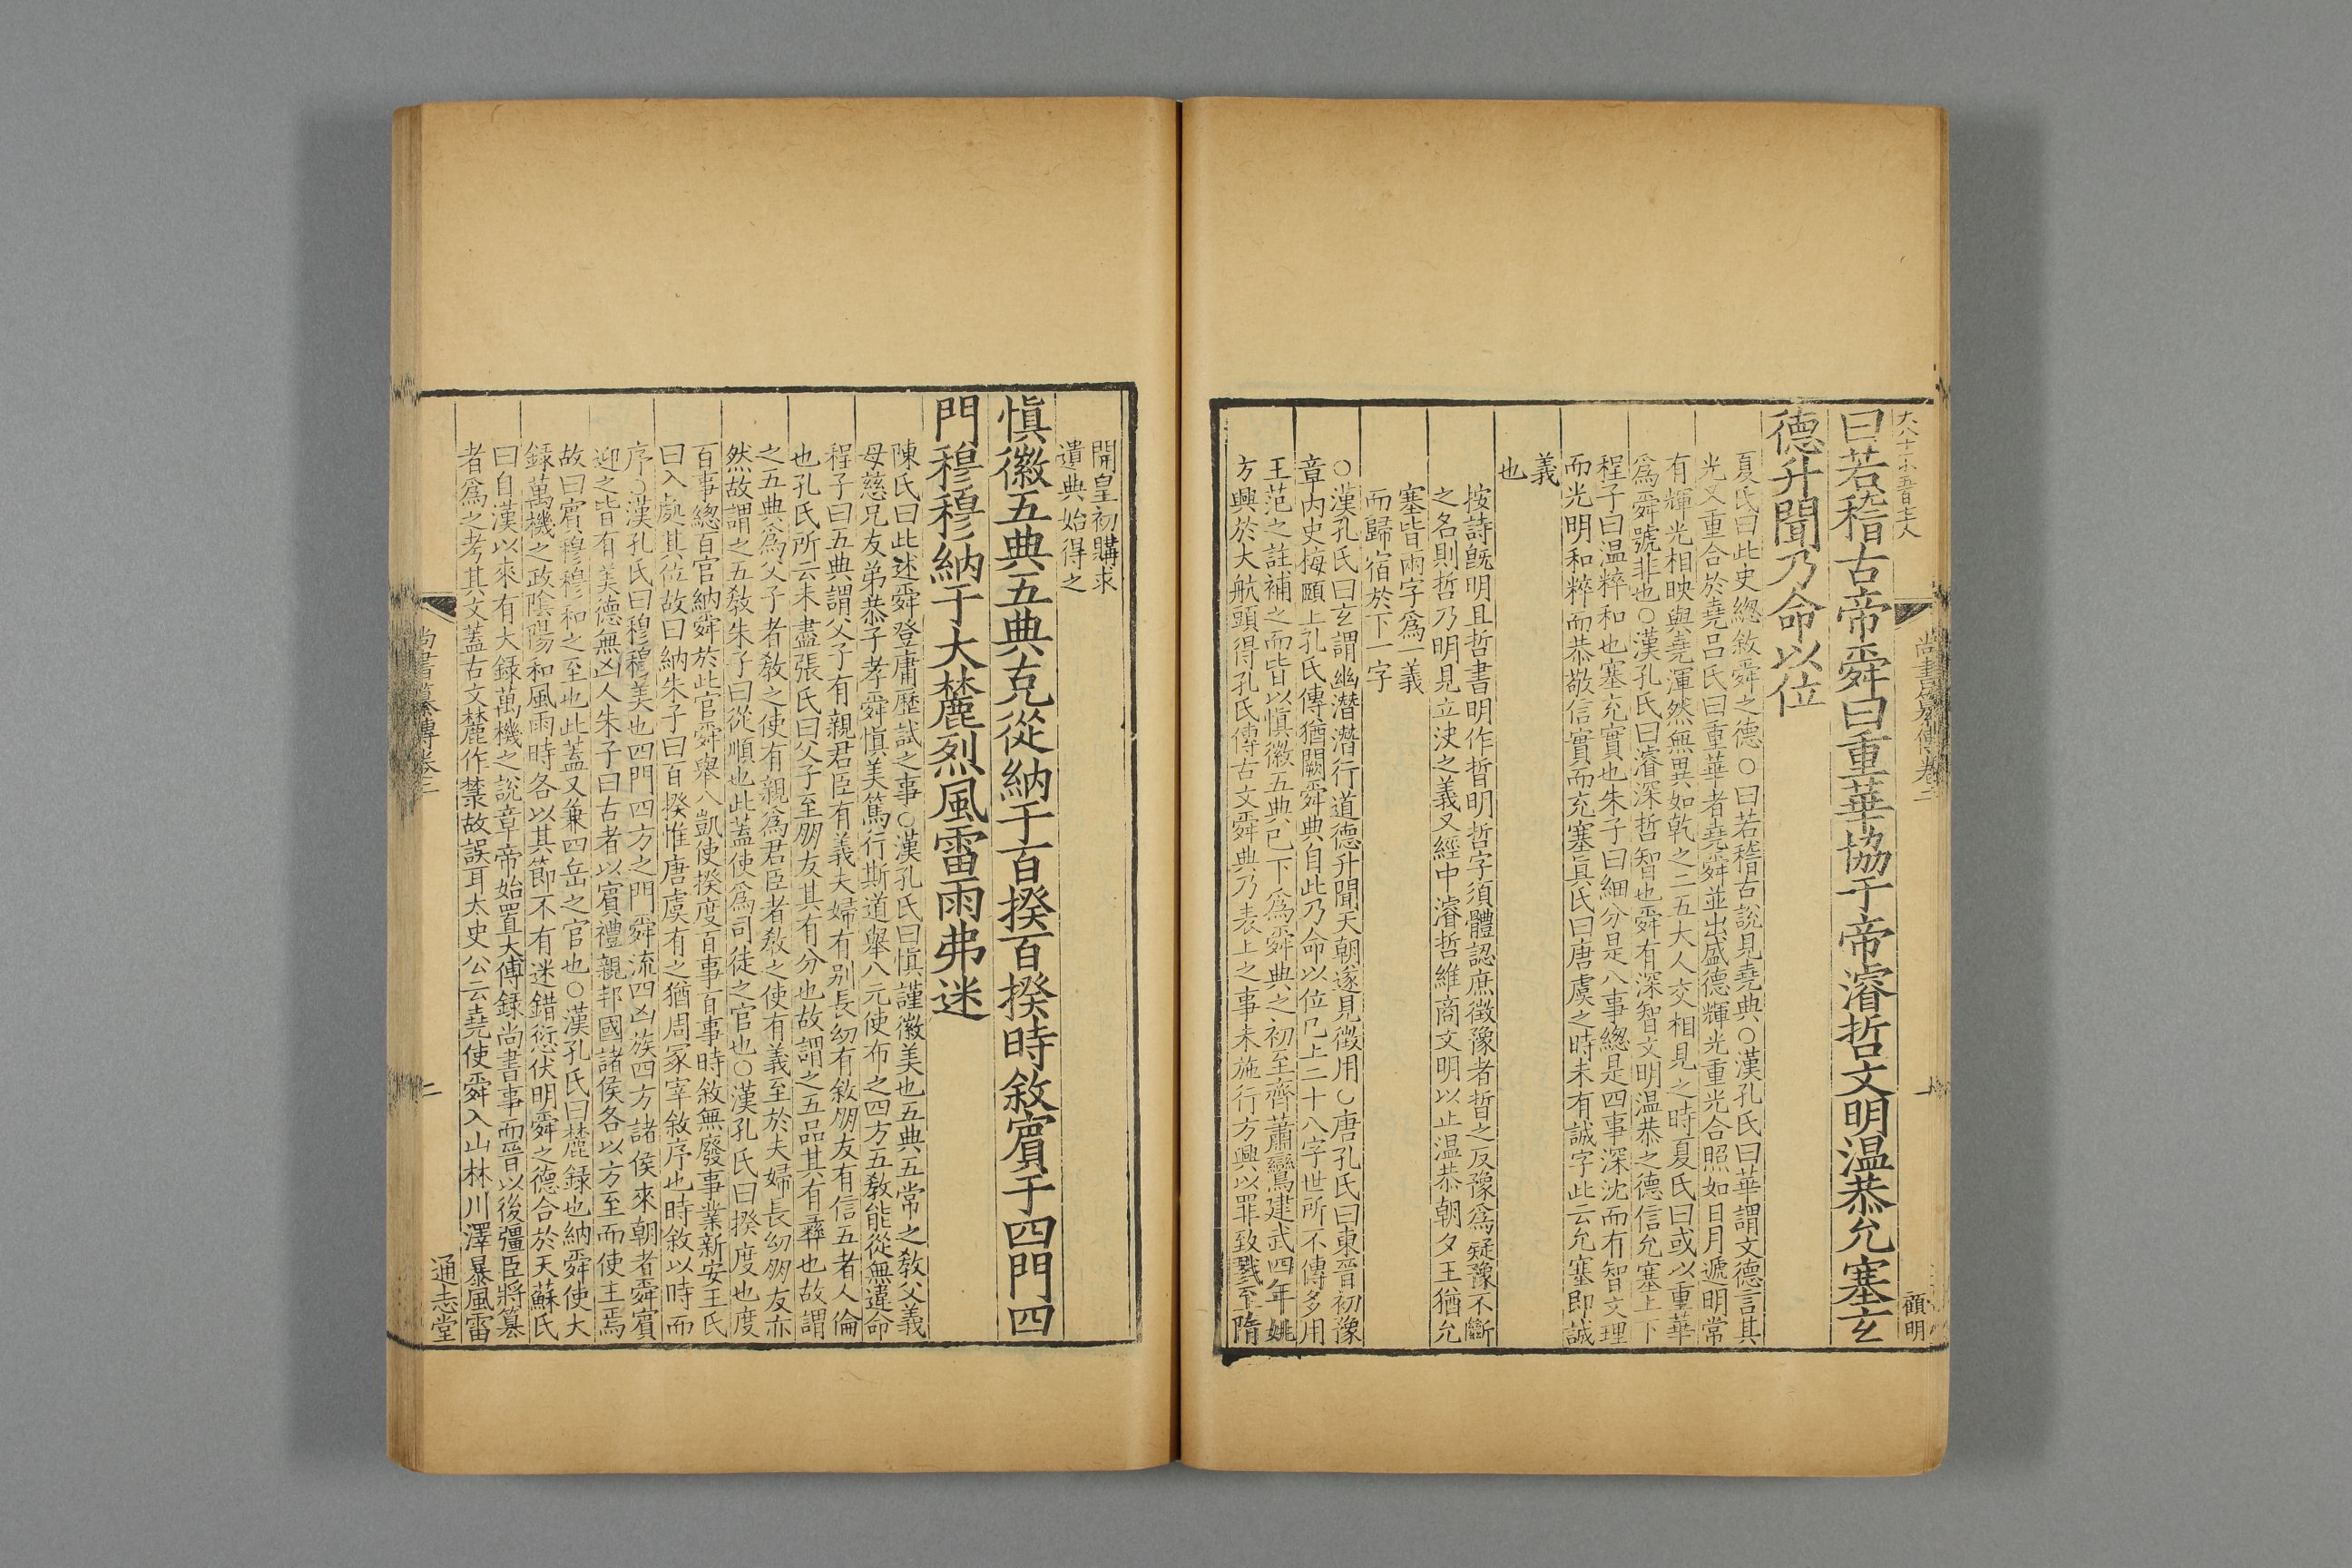 曰若稽古帝舜曰重華協于帝濬哲文明温恭允塞玄
德升聞乃命以位
夏氏曰此史緫敘舜之德○曰若稽古說見堯典○漢孔氏曰華謂文德言其
光又重合於堯吕氏曰重華者堯舜並出盛德輝光重光合照如日月遞明常
有輝光相映與堯渾然無異如乾之二五大人交相見之時夏氏曰或以重華
爲舜號非也○漢孔氏曰濬深哲智也舜有深智文明温恭之德信允塞上下
程子曰温粹和也塞充實也朱子曰細分是八事緫是四事深沈而有智文理
而光明和粹而恭敬信實而充塞眞氏曰唐虞之時未有誠字此云允塞即誠
義
也
按詩旣明且哲書明作晢明哲字須體認庶徴豫者晢之反豫爲疑豫不斷
之名則哲乃明見立決之義又經中濬哲維商文明以止温恭朝夕王猶允
塞皆兩字爲一義
而歸宿於下一字
○漢孔氏曰玄謂幽潛潛行道德升聞天朝遂見徴用○唐孔氏曰東晉初豫
章内史梅頤上孔氏傳猶闕舜典自此乃命以位已上二十八字世所不傳多用
王范之註補之而皆以愼徽五典已下爲舜典之初至齊蕭鸞建武四年姚
方興於大航頭得孔氏傳古文舜典乃表上之事未施行方興以罪致戮至隋
開皇初購求
遺典始得之
愼徽五典五典克從納于百揆百揆時敘賔于四門四
門穆穆納于大麓烈風雷雨弗迷
陳氏曰此述舜登庸歴試之事○漢孔氏曰愼謹徽美也五典五常之敎父義
母慈兄友弟恭子孝舜愼美篤行斯道舉八元使布之四方五敎能從無違命
程子曰五典謂父子有親君臣有義夫婦有别長幼有敘朋友有信五者人倫
也孔氏所云未盡張氏曰父子至朋友其有分也故謂之五品其有彝也故謂
之五典爲父子者敎之使有親爲君臣者敎之使有義至於夫婦長幼朋友亦
然故謂之五敎朱子曰從順也此蓋使爲司徒之官也○漢孔氏曰揆度也度
百事緫百官納舜於此官舜舉八凱使揆度百事百事時敘無廢事業新安王氏
曰入處其位故曰納朱子曰百揆惟唐虞有之猶周冢宰敘序也時敘以時而
序○漢孔氏曰穆穆美也四門四方之門舜流四凶族四方諸侯來朝者舜賔
迎之皆有美德無凶人朱子曰古者以賔禮親邦國諸侯各以方至而使主焉
故曰賔穆穆和之至也此蓋又兼四岳之官也○漢孔氏曰麓録也納舜使大
録萬機之政陰陽和風雨時各以其節不有迷錯愆伏明舜之德合於天蘇氏
曰自漢以來有大録萬機之說章帝始置大傅録尚書事而晉以後彊臣將簒
者爲之考其文蓋古文麓作𥻆故誤耳太史公云堯使舜入山林川澤暴風雷
尚書纂傳卷三
二
通志堂
顧明